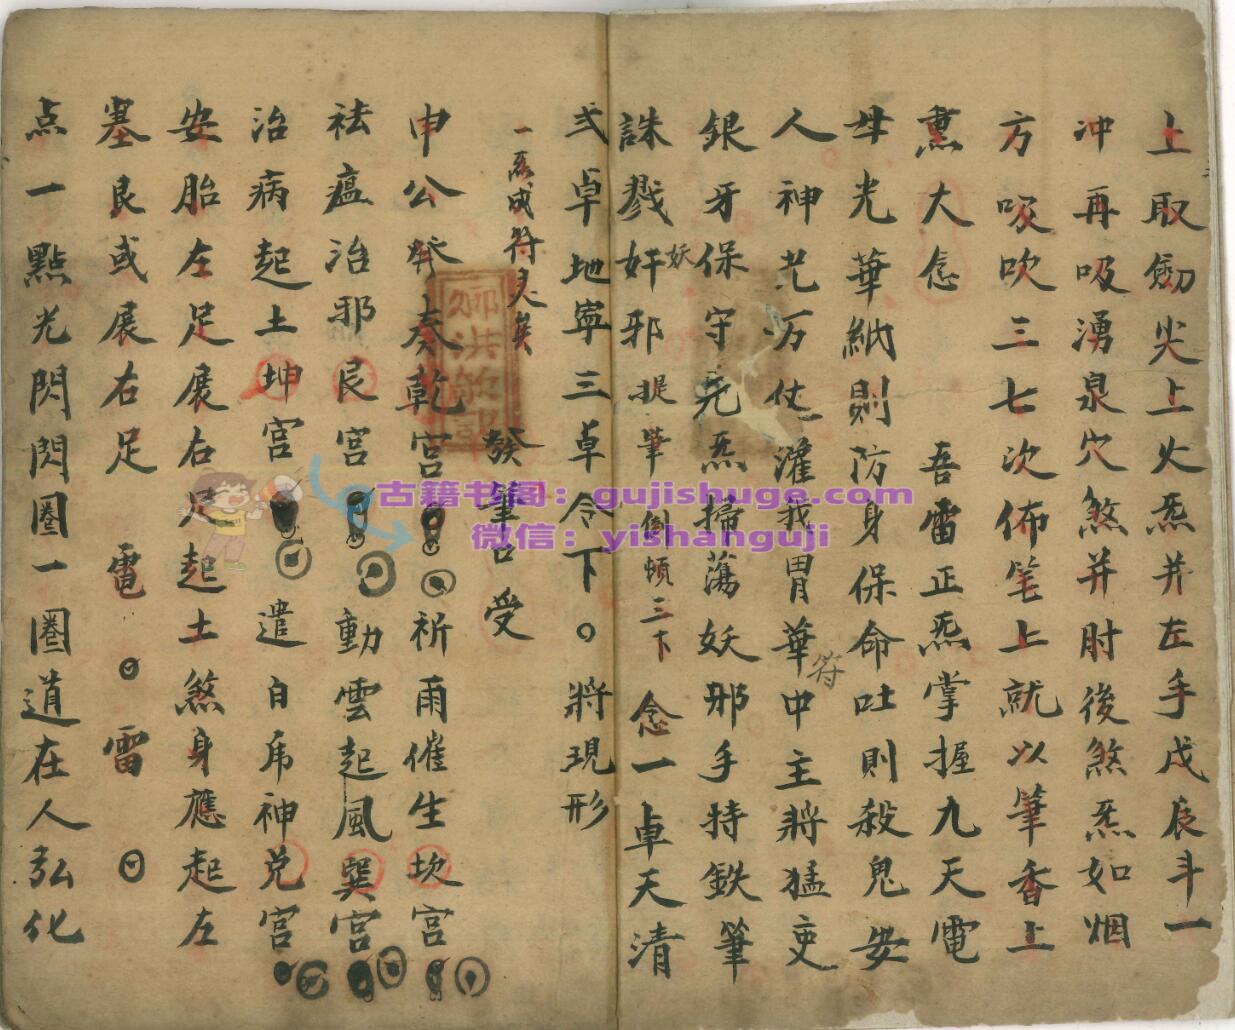 上取劔尖上火炁并左手戊辰斗一
冲再吸湧泉穴煞并肘後煞炁如烟
方吸吹三七次佈笔上就以筆香上
熏大念 吾雷正炁掌握九天電
母光華納則防身保命吐則殺鬼安
人神光万仗灌我胃華中主将猛吏
符
銀牙保守堯炁掃蕩妖邪手持鉄筆
誅戮奸邪提筆倒頓三下念一卓天清
妖
弍卓地寧三卓令下。將現形
一炁成符灵矣
發筆口受
申公奏乾宮祈雨催生坎宮
祛瘟治邪艮宮動雲起風巽宮
治病起土坤宮遣白虎神兑宮
安胎左足展右足起土煞身應起左
塞艮或展右足 電 雷
点一點光閃閃圈一圈道在人弘化
古籍书阁：gujishuge.com
微信：yishanguji